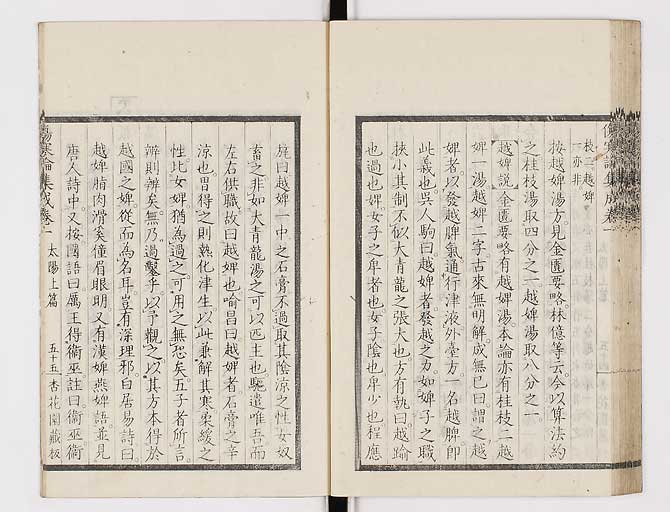 傷寒論集成卷一
枝二越婢
一亦非
按越婢湯方見金匱要略林億等云今以算法約
之桂枝湯取四分之一越婢湯取八分之一
越婢說金匱要略有越婢湯本論亦有桂枝二越
婢一湯越婢二字古來無明解成無已曰謂之越
婢者以發越脾氣通行津液外臺方一名越脾即
此義也吳人駒曰越婢者發越之力如婢子之職
挾小其制不似大青龍之張大也方有執曰越踰
也過也婢女子之卑者也女子陰也卑少也程應
旄曰越婢一中之石膏不過取其陰涼之性女奴
畜之非如大青龍湯之可以匹主也驅遣唯吾而
左右供職故曰越婢也喻昌曰越婢者石膏之辛
涼也胃得之則熱化津生以此兼解其寒柔緩之
性比女婢猶為過之可用之無恐矣五子者所言
辨則辨矣無乃過鑿乎以予觀之以其方本得於
越國之婢從而為名耳豈有深理邪白居易詩曰
越婢脂肉滑奚僮眉眼明又有漢婢燕婢語並見
唐人詩中又按國語曰厲王得衞巫註曰衞巫衞
傷寒論集成卷一
太陽上篇
五十五
杏花園藏板